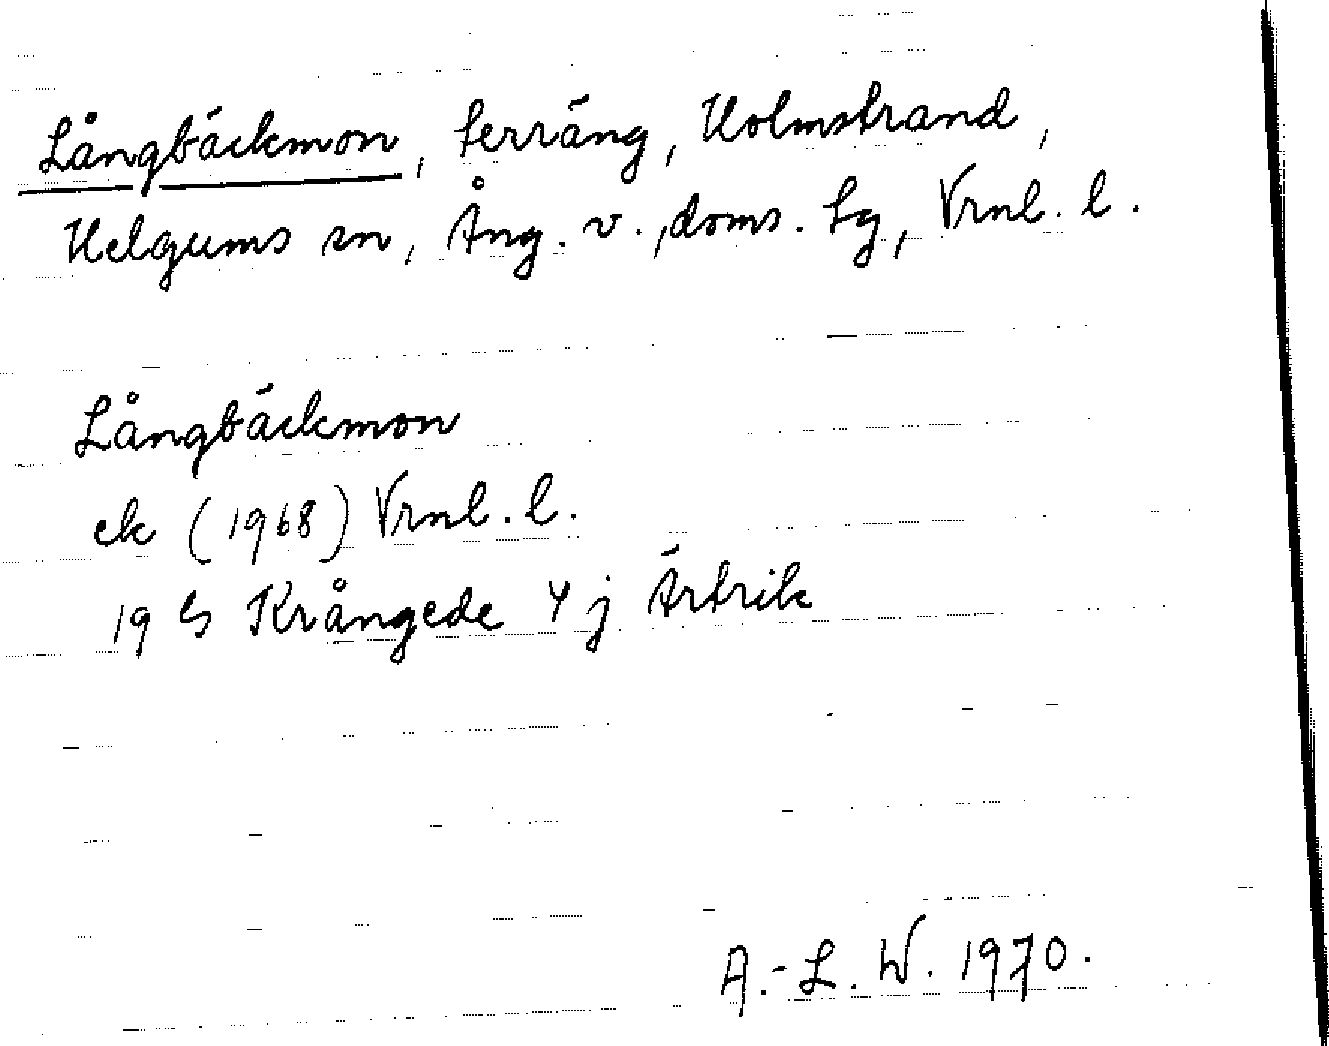 Långbäckmon, terräng, Holmstrand,
Helgums sn, Ång. v., doms. tg, Vrnl. l.
Långbäckmon
ek (1968) Vrnl. l.
19 G Krångede 4 j Ärtrik
A.-L. W. 1970.